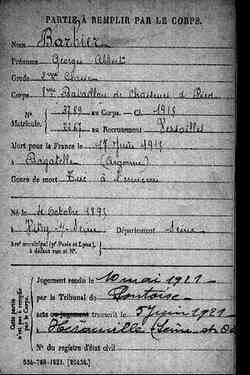 PARTIE À REMPLIR PAR LE CORPS.
Nom Barbier
Prénoms Georges Albert
Grade 2me Classe
Corps Bataillon de Chasseurs à Pied
N° 3789 au Corps. — Cl. 1915
Matricule. au Recrutement Versailles
Mort pour la France le 17 Juin 1915
à Bagatelle (Argonne)
Genre de mort Tué à l'ennemi
Né le 4 Octobre 1895
à Vitry-s/-Seine Département Seine
Arrt municipal (pr Paris et Lyon),
à défaut rue et N°.
Cette partie n'est pas à remplir par le Corps.
Jugement rendu le 10 mai 1921
par le Tribunal de Pontoise
acte ou jugement transcrit le 5 juin 1921
à (Seine-et-
N° du registre d'état civil
534-708-1921. [26434.]